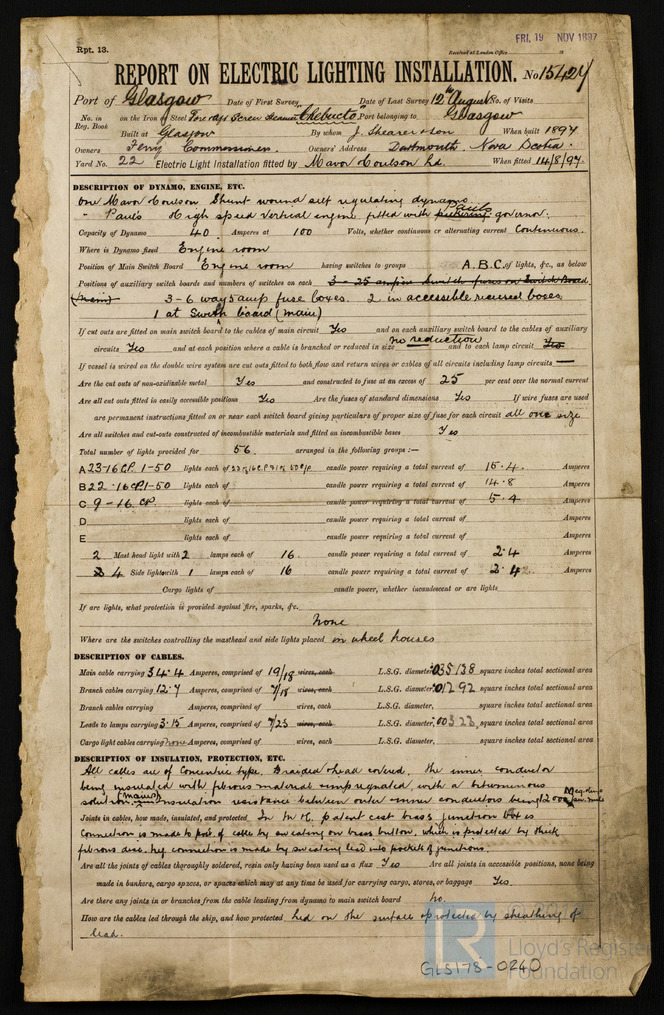 Rpt. 13.
FRI. 19 NOV 1897
Received at London Office 18
REPORT ON ELECTRIC LIGHTING INSTALLATION. No 15424
Port of Glasgow Date of First Survey Date of Last Survey 12th August No. of Visits
No. in Reg. Book on the Iron or Steel Screw Steamer "Chebucto" Port belonging to Glasgow
Built at Glasgow By whom J. Shearer & Son When built 1897
Owners Ferry Commissioners Owners' Address Dartmouth. Nova Scotia.
Yard No. 22 Electric Light Installation fitted by Mavor Coulson Ld. When fitted 14/8/97.
DESCRIPTION OF DYNAMO, ENGINE, ETC.
One Mavor Coulson Shunt wound self regulating dynamo
" Paul's High speed vertical engine fitted with Pauls pickering governor.
Capacity of Dynamo 40 Amperes at 100 Volts, whether continuous or alternating current Continuous.
Where is Dynamo fixed Engine room
Position of Main Switch Board Engine room having switches to groups A. B. C. of lights, &c., as below
Positions of auxiliary switch boards and numbers of switches on each 3 - 25 ampere Switch fuses on Switch Board
(main) 3 - 6 way 5 amp fuse boxes. 2 in accessible recessed boxes
1 at Switch board (main)
If cut outs are fitted on main switch board to the cables of main circuit Yes and on each auxiliary switch board to the cables of auxiliary
circuits Yes and at each position where a cable is branched or reduced in size no reduction and to each lamp circuit Yes
If vessel is wired on the double wire system are cut outs fitted to both flow and return wires or cables of all circuits including lamp circuits —
Are the cut outs of non-oxidizable metal Yes and constructed to fuse at an excess of 25 per cent over the normal current
Are all cut outs fitted in easily accessible positions Yes Are the fuses of standard dimensions Yes If wire fuses are used
are permanent instructions fitted on or near each switch board giving particulars of proper size of fuse for each circuit all one size
Are all switches and cut-outs constructed of incombustible materials and fitted on incombustible bases Yes
Total number of lights provided for 56. arranged in the following groups :—
A 23-16 CP. 1-50 lights each of 22 of 16 C.P. & 1 of 50 C/P candle power requiring a total current of 15.4. Amperes
B 22-16 CP. 1-50 lights each of candle power requiring a total current of 14.8 Amperes
C 9-16. CP. lights each of candle power requiring a total current of 5.4 Amperes
D lights each of candle power requiring a total current of Amperes
E lights each of candle power requiring a total current of Amperes
2 Mast head light with 2 lamps each of 16. candle power requiring a total current of 2.4 Amperes
4 Side light with 1 lamps each of 16 candle power requiring a total current of 2.4 Amperes
Cargo lights of candle power, whether incandescent or arc lights
If arc lights, what protection is provided against fire, sparks, &c.
None
Where are the switches controlling the masthead and side lights placed in wheel houses
DESCRIPTION OF CABLES.
Main cable carrying 34.4 Amperes, comprised of 19/18 wires, each L.S.G. diameter, .035138 square inches total sectional area
Branch cables carrying 12.7 Amperes, comprised of 7/18 wires, each L.S.G. diameter, .01292 square inches total sectional area
Branch cables carrying Amperes, comprised of wires, each L.S.G. diameter, square inches total sectional area
Leads to lamps carrying 3.15 Amperes, comprised of 7/23 wires, each L.S.G. diameter, .00323 square inches total sectional area
Cargo light cables carrying none Amperes, comprised of wires, each L.S.G. diameter, square inches total sectional area
DESCRIPTION OF INSULATION, PROTECTION, ETC.
All cables are of Concentric type, Braided & lead covered. The inner conductor
being insulated with fibrous material impregnated with a bitumenous
solution (mains) Insulation resistance between outer & inner conductors being 2000 Megohms per mile
Joints in cables, how made, insulated, and protected In M. & C. patent cast brass junction boxes
Connection is made to post. of cable by sweating on brass button, which is protected by thick
fibrous disc. Neg connection is made by sweating lead into pockets of junctions.
Are all the joints of cables thoroughly soldered, resin only having been used as a flux Yes Are all joints in accessible positions, none being
made in bunkers, cargo spaces, or spaces which may at any time be used for carrying cargo, stores, or baggage Yes.
Are there any joints in or branches from the cable leading from dynamo to main switch board No.
How are the cables led through the ship, and how protected Led on the surface protected by sheathing of
lead.
LR
Lloyd's Register
Foundation
GLS178-0240